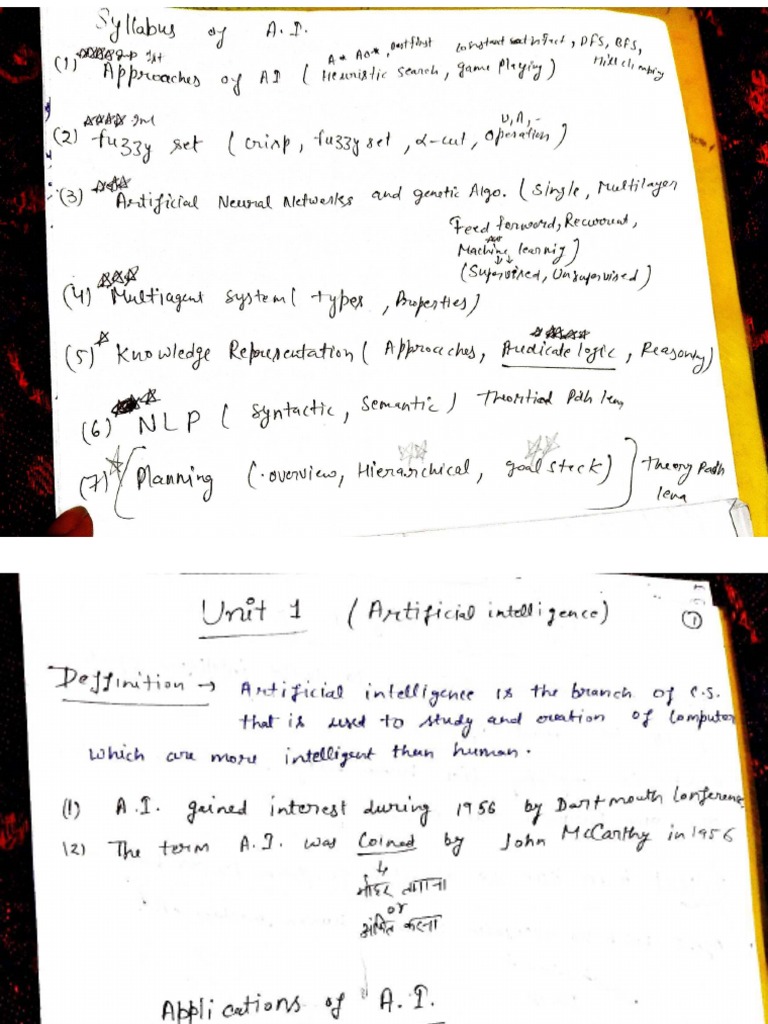 Syllabus of A.I.
A* AO*, Best first, Constant satisfact, DFS, BFS,
(1) Approaches of AI ( Heuristic search, game Playing ) Hill climbing
U, Λ, -
(2) fuzzy set ( crisp, fuzzy set, α-cut, operation )
(3) Artificial Neural Networks and genetic Algo. ( Single, Multilayer
Feed forward, Recurrent,
Machine learning )
(Supervised, Unsupervised)
(4) Multiagent System ( types, Properties )
(5) Knowledge Representation ( Approaches, Predicate logic, Reasoning )
(6) NLP ( Syntactic, Semantic )
(7) Planning ( overview, Hierarchical, goal stack ) Theory
Unit 1 ( Artificial intelligence ) 1
Deffinition → Artificial intelligence is the branch of C.S.
that is used to study and creation of Computer
which are more intelligent than human.
(1) A.I. gained interest during 1956 by Dartmouth Conference
(2) The term A.I. was Coined by John McCarthy in 1956
or
अंकित करना
Applications of A.I.